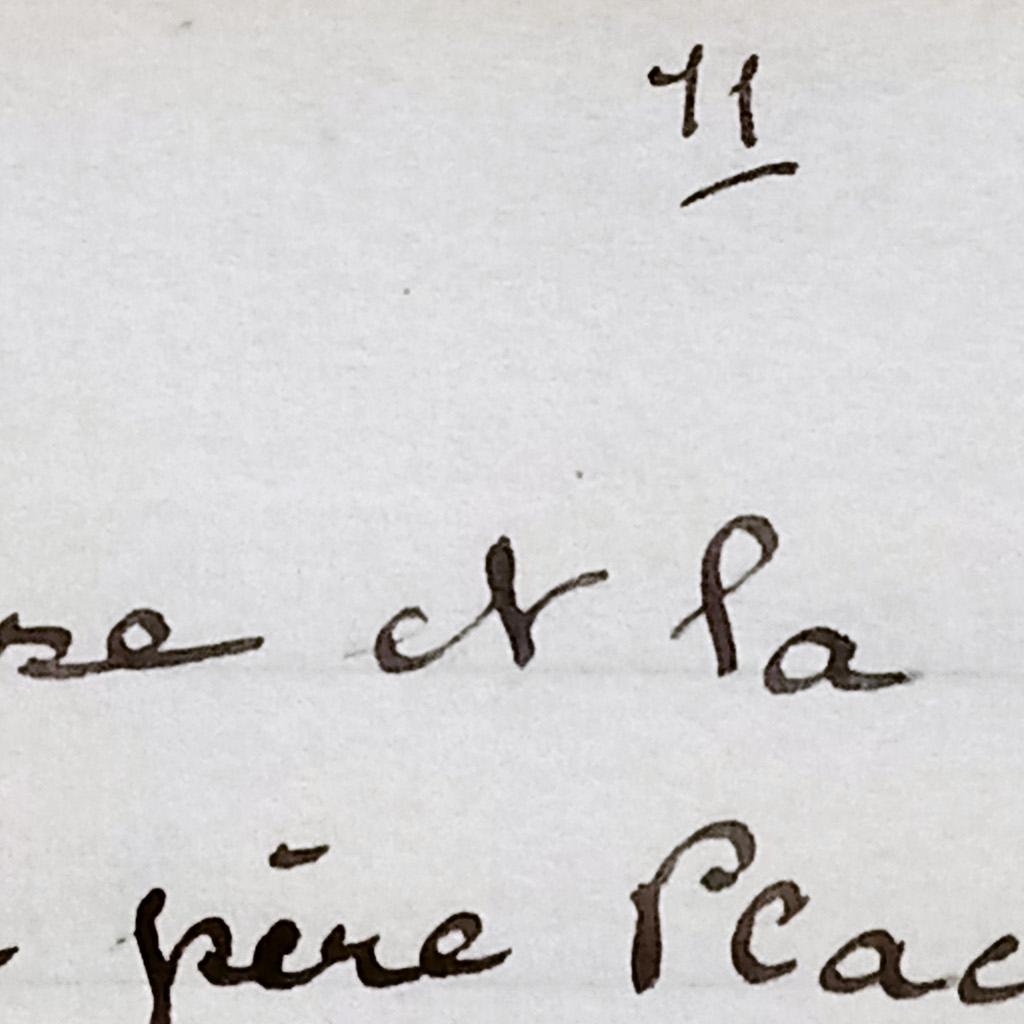 11
re et la
père Plac